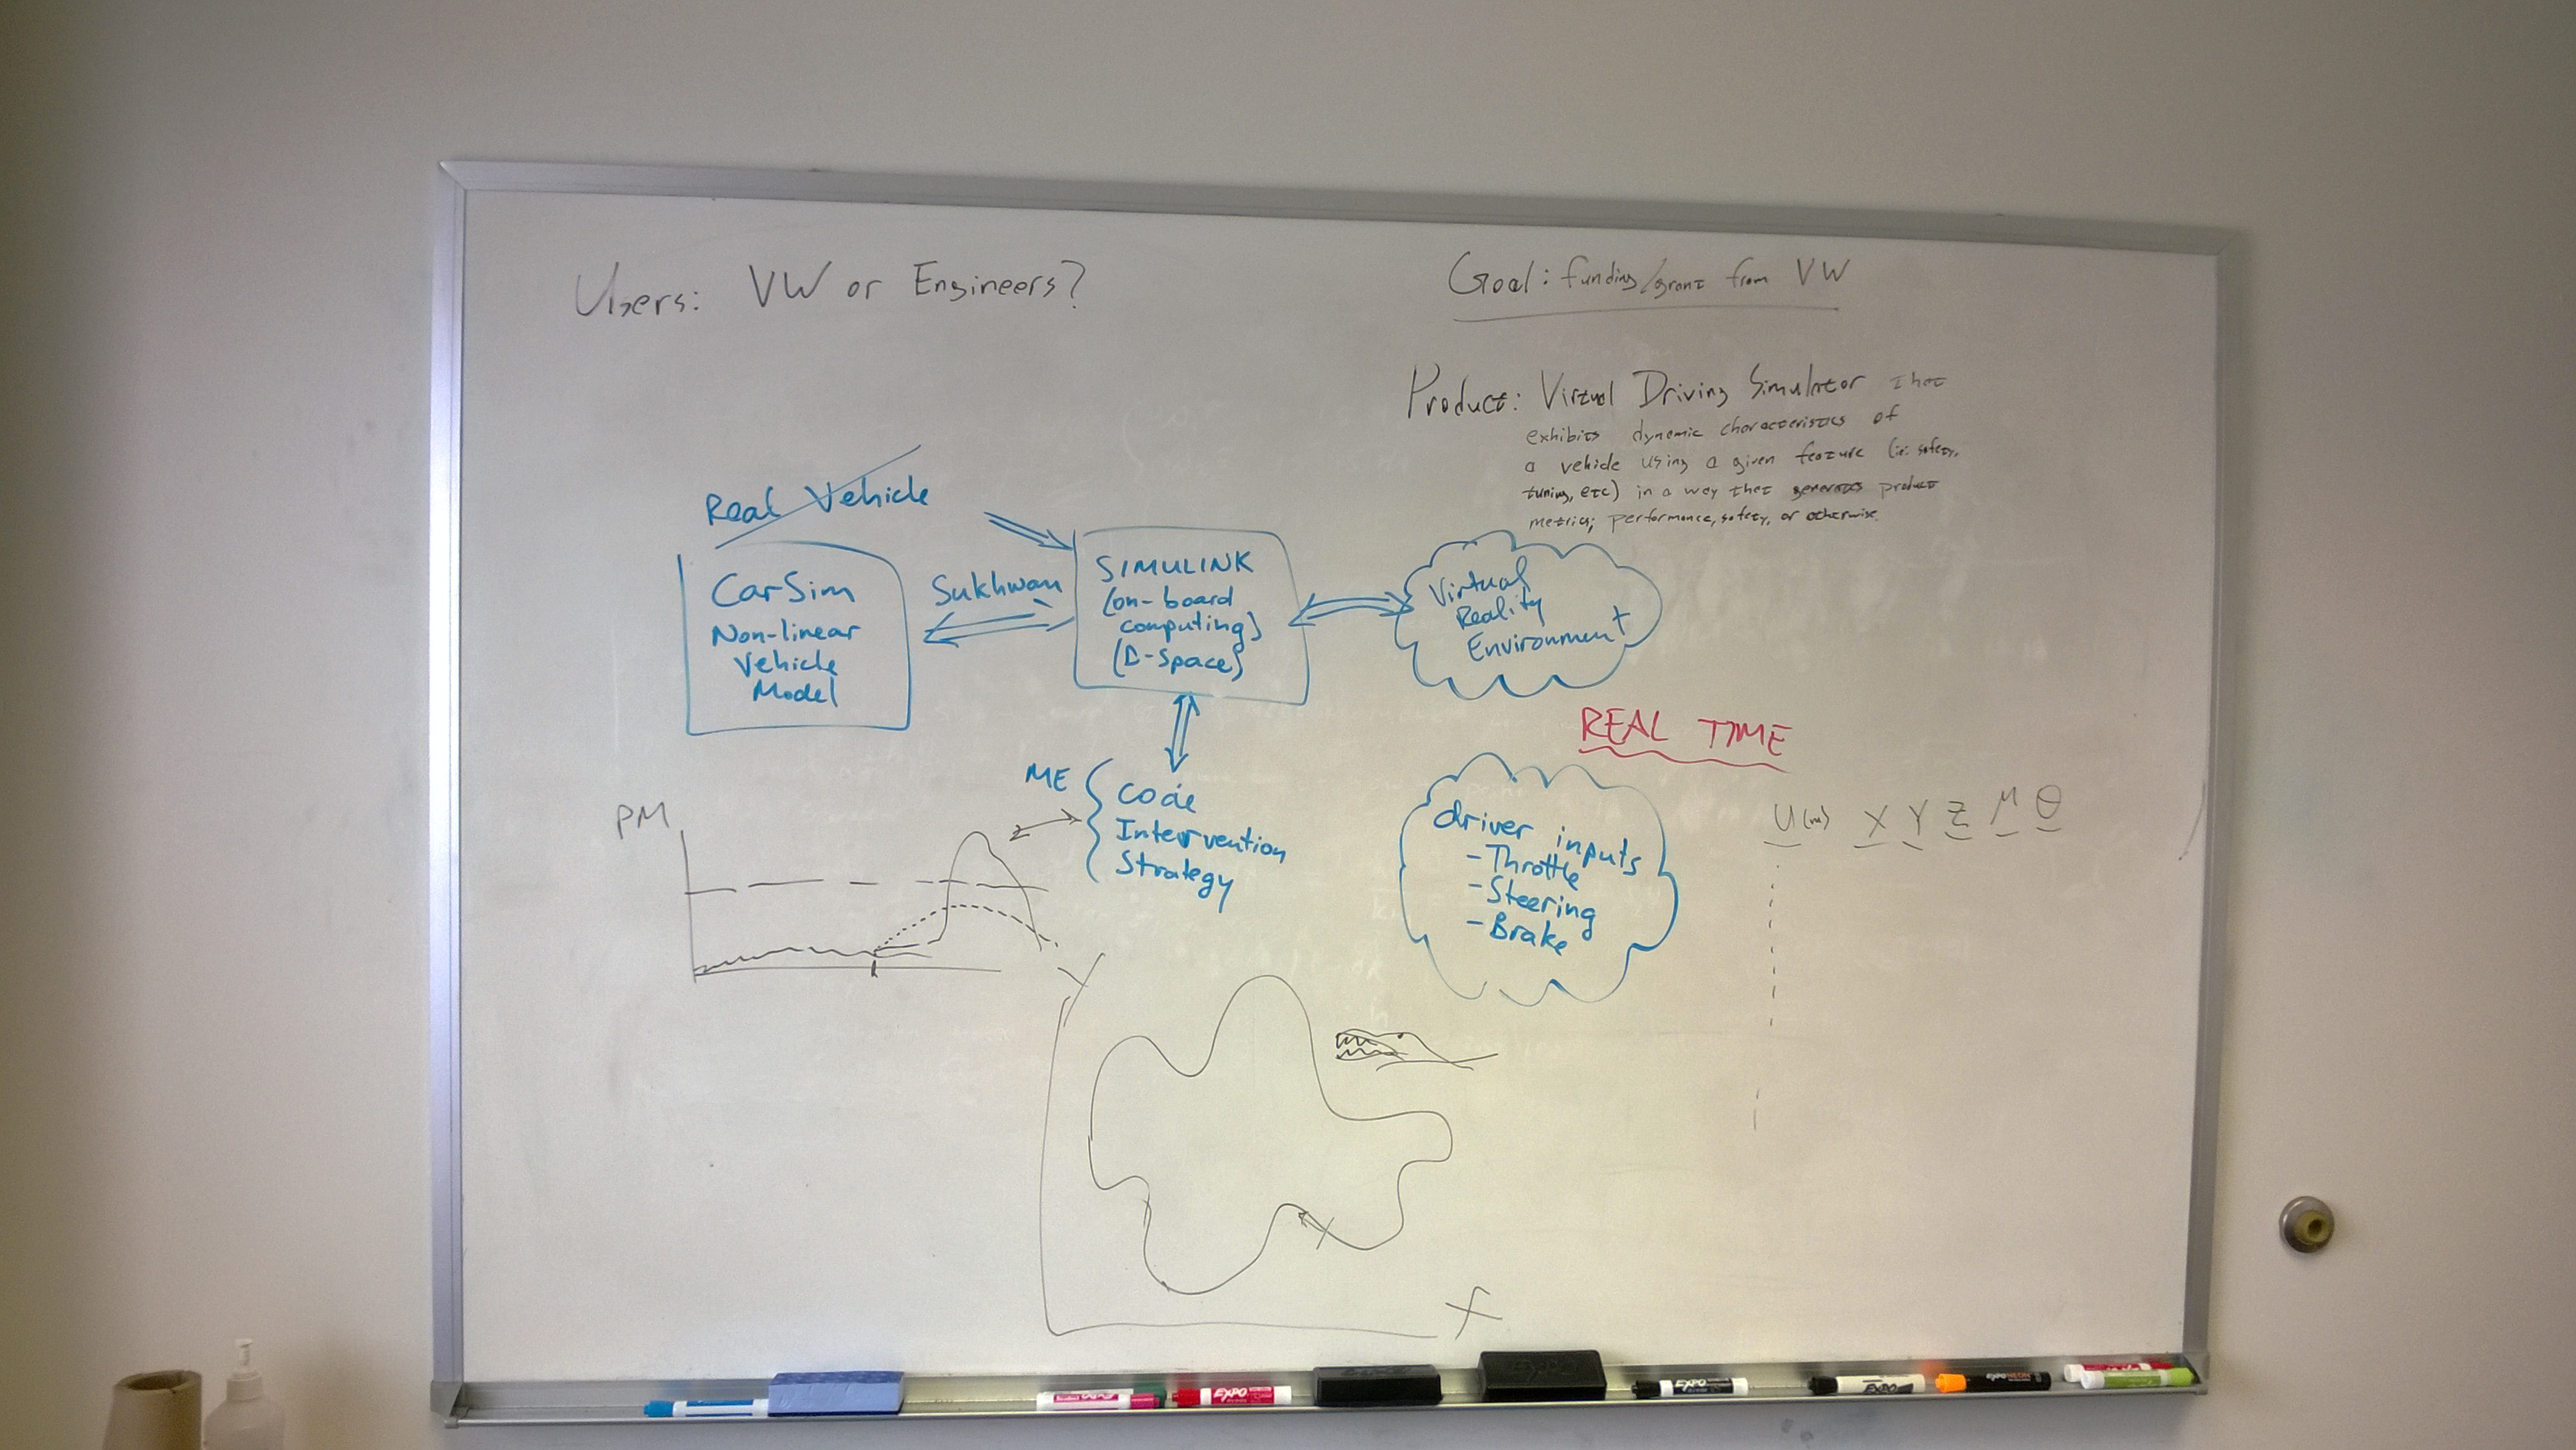 Users: VW or Engineers?
Goal: funding/grant from VW
Product: Virtual Driving Simulator that
exhibits dynamic characteristics of
a vehicle using a given feature (ie: safety,
tuning, etc) in a way that generates product
metrics; performance, safety, or otherwise.
Real Vehicle
CarSim
Non-linear
Vehicle
Model
Sukhwan
SIMULINK
(on-board
computing)
(D-Space)
Virtual
Reality
Environment
REAL TIME
ME
Code
Intervention
Strategy
driver inputs
- Throttle
- Steering
- Brake
U(m) X Y Z M θ
PM
Y
X
EXPO
EXPO
EXPO
EXPO